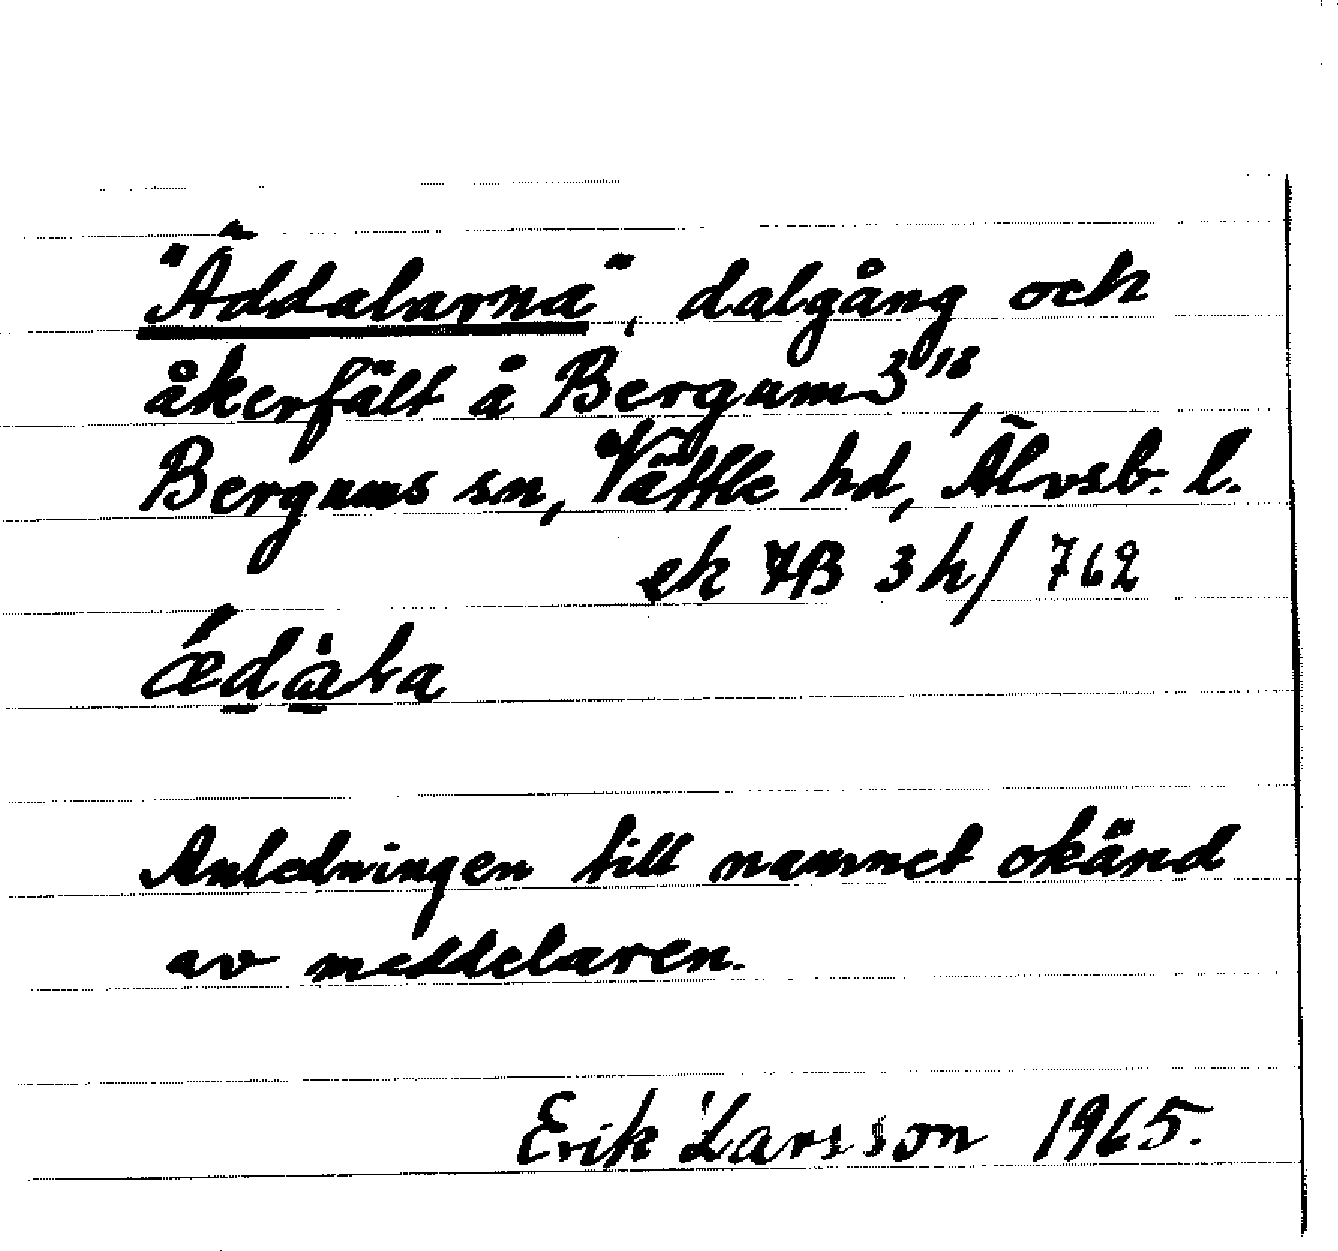 "Äddalarna", dalgång och
åkerfält å Bergum 3¹⁸,
Bergums sn, Vättle hd, Älvsb. l.
ek 7B 3h/ 762
Anledningen till namnet okänd
av meddelaren.
Erik Larsson 1965.